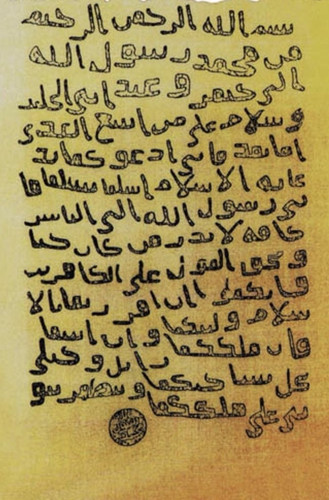 بسم الله الرحمن الرحيم
من محمد رسول الله
الى جيفر و عبد ابنى الجلند
وسلام على من اتبع الهدى
اما بعد فانى ادعو كما بد
عايه الاسلام اسلما تسلما فا
نى رسول الله الى الناس
كافه لانذر من كان حيا
و يحق القول على الكافرين
فانكما ان اقررتما بالا
سلام وليتكما و ان ابيتما
فان ملككما زايل و خيلى
تحل بساحتكما و تظهر نبو
تى على ملككما